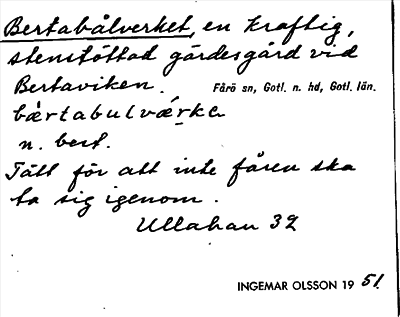 Bertabålverket, en kraftig,
stenstöttad gärdesgård vid
Bertaviken. Fårö sn, Gotl. n. hd, Gotl. län.
bærtabulværke
n. best.
Tätt för att inte fåren ska
ta sig igenom.
Ullahau 32
INGEMAR OLSSON 19 51.